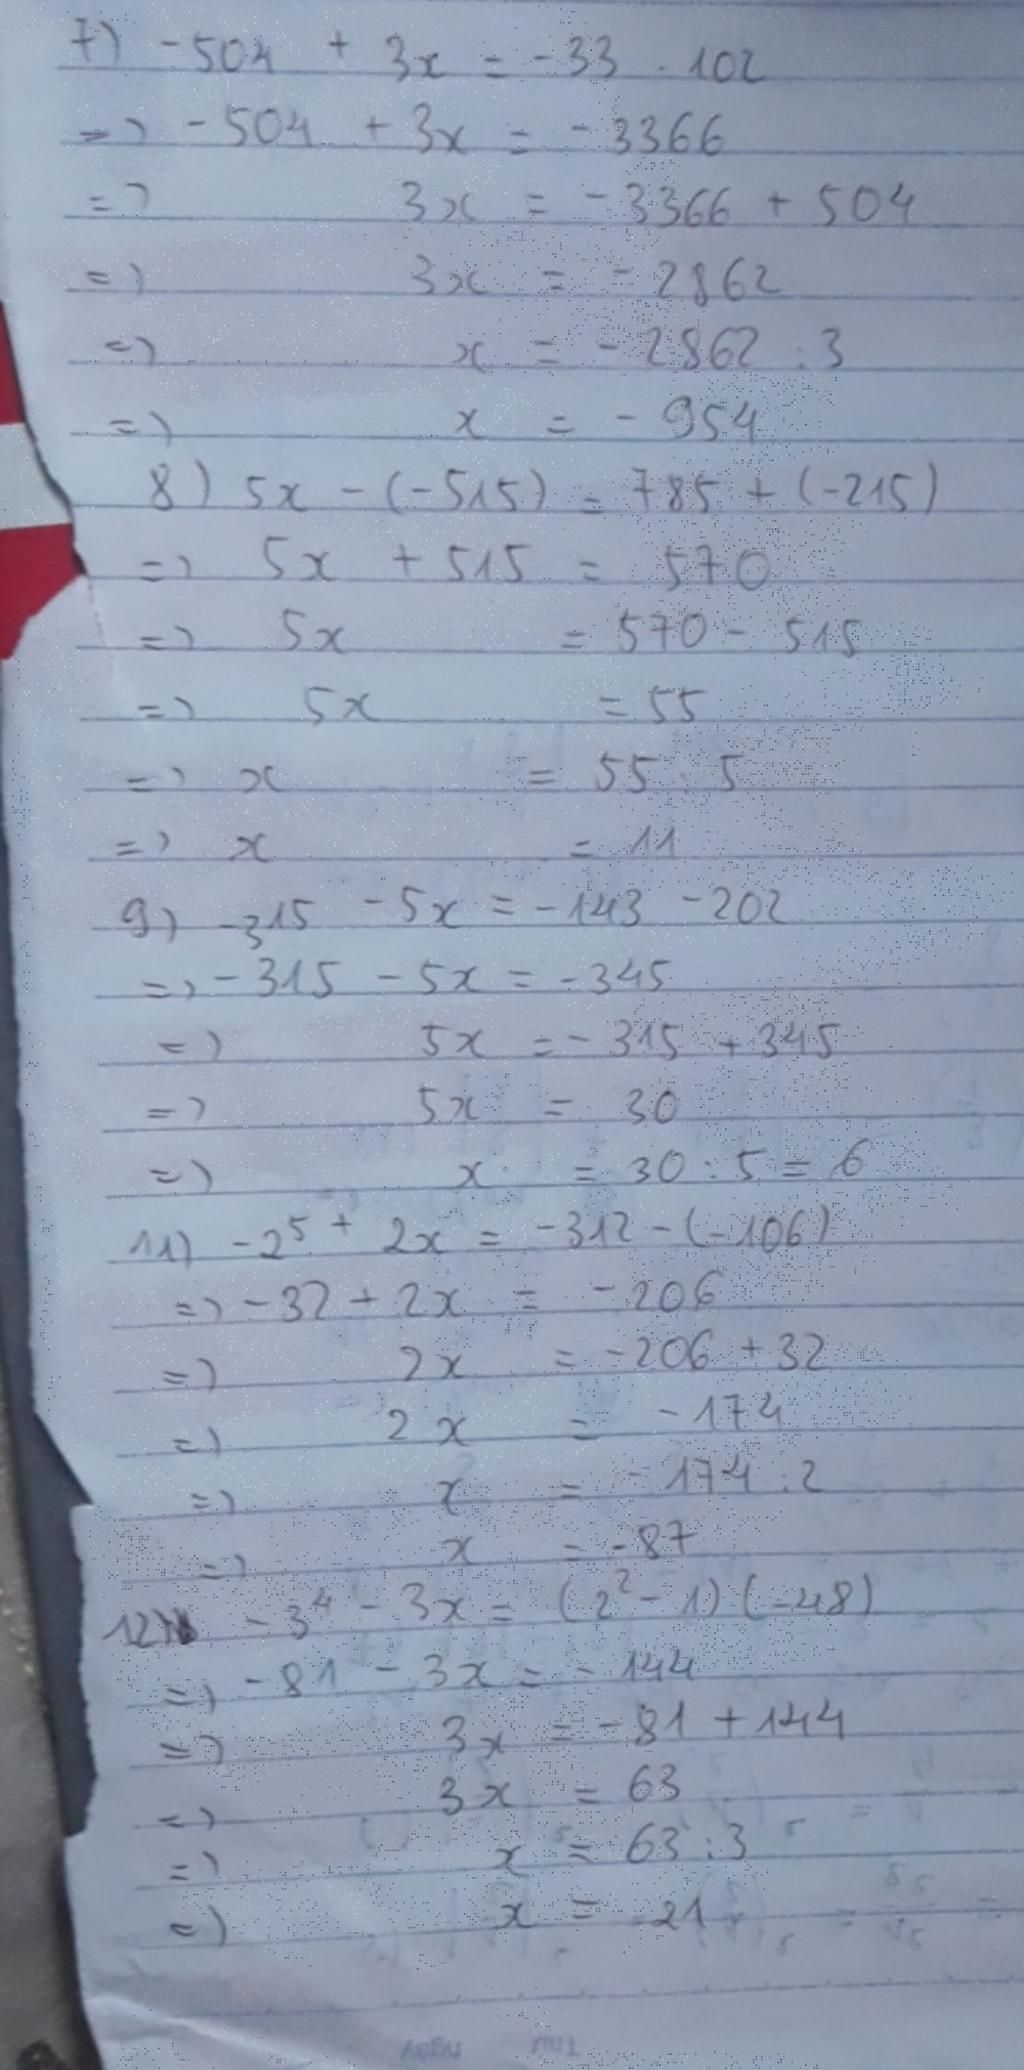 7) -504 + 3x = -33 . 102
=> -504 + 3x = -3366
=> 3x = -3366 + 504
=> 3x = -2862
=> x = -2862 : 3
=> x = -954
8) 5x - (-515) = 785 + (-215)
=> 5x + 515 = 570
=> 5x = 570 - 515
=> 5x = 55
=> x = 55 : 5
=> x = 11
9) -315 - 5x = -143 - 202
=> -315 - 5x = -345
=> 5x = -315 + 345
=> 5x = 30
=> x = 30 : 5 = 6
11) -2⁵ + 2x = -312 - (-106)
=> -32 + 2x = -206
=> 2x = -206 + 32
=> 2x = -174
=> x = -174 : 2
=> x = -87
12) -3⁴ - 3x = (2² - 1) (-48)
=> -81 - 3x = -144
=> 3x = -81 + 144
=> 3x = 63
=> x = 63 : 3
=> x = 21